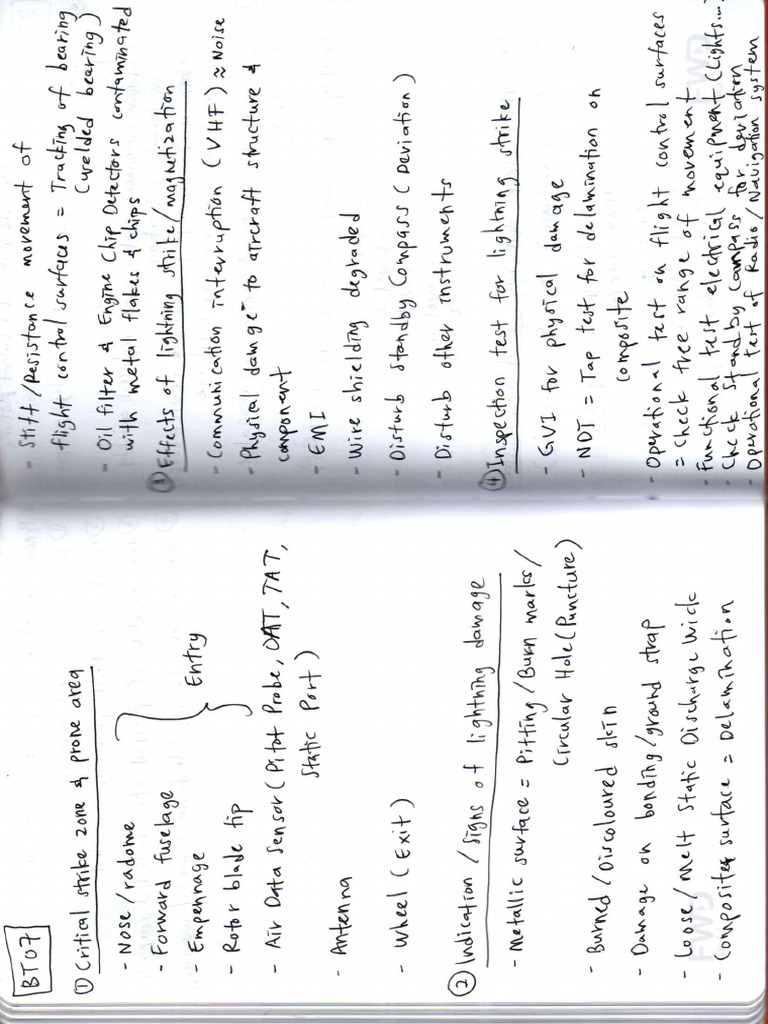 BT07
① Critical strike zone & prone area
- Nose/radome
- Forward fuselage
- Empennage
- Rotor blade tip
Entry
- Air Data Sensor (Pitot Probe, OAT, TAT,
Static Port)
- Antenna
- Wheel (Exit)
② Indication / Signs of lightning damage
- Metallic surface = Pitting/Burn marks/
Circular Hole (Puncture)
- Burned/Discoloured skin
- Damage on bonding/ground strap
- Loose/Melt Static Discharge Wick
- Composite surface = Delamination
- Stiff/Resistance movement of
flight control surfaces = Tracking of bearing
(welded bearing)
- Oil filter & Engine Chip Detectors contaminated
with metal flakes & chips
③ Effects of lightning strike/magnetization
- Communication interruption (VHF) ≈ Noise
- Physical damage to aircraft structure &
component
- EMI
- Wire shielding degraded
- Disturb Standby Compass (Deviation)
- Disturb other instruments
④ Inspection test for lightning strike
- GVI for physical damage
- NDT = Tap test for delamination on
composite
- Operational test on flight control surfaces
= Check free range of movement
- Functional test electrical equipment (Lights...)
- Check Standby Compass for deviation
- Operational test of Radio/Navigation system